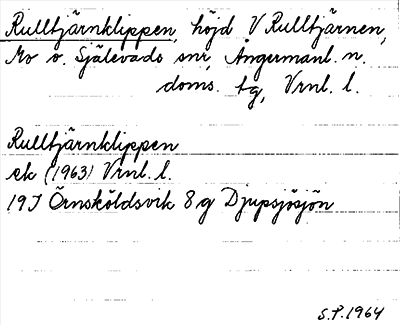 Rulltjärnklippen, höjd V Rulltjärnen,
Mo o. Själevads snr, Ångermanl. n.
doms. tg, Vrnl. l.
Rulltjärnklippen
ek (1963) Vrnl. l.
19J Örnsköldsvik 8 g Djupsjösjön
S.P. 1964